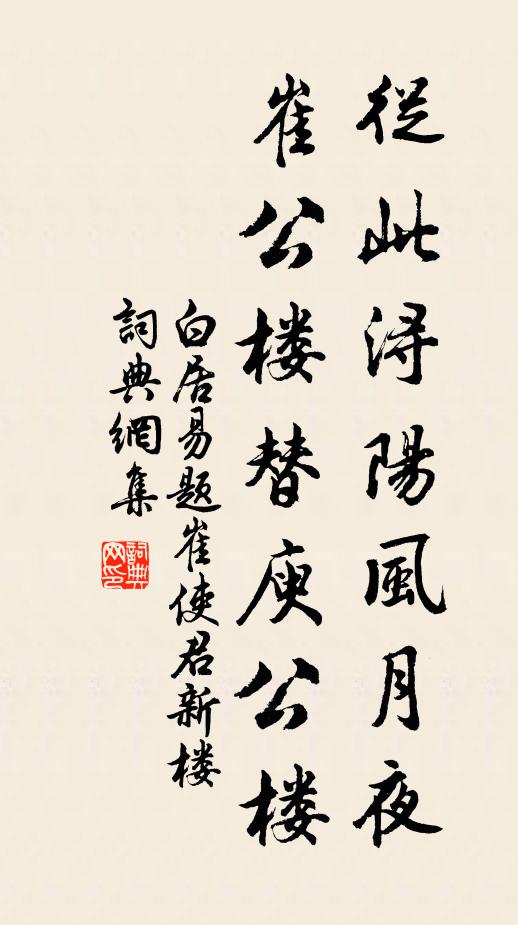 從此浔陽風月夜
崔公楼替庾公楼
白居易题崔使君新楼
詞典網集
詞典网印